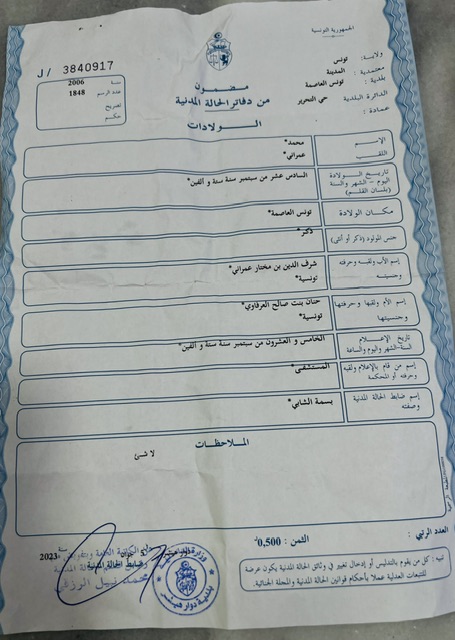 الجمهورية التونسية
ولاية: تونس
معتمدية: المدينة
بلدية: تونس العاصمة
الدائرة البلدية: حي التحرير
عمادة:
J/ 3840917
سنة 2006
عدد الرسم 1848
التصريح
حكم
مضمون
من دفاتر الحالة المدنية
الولادات
الإسم محمد*
اللقب عمراني*
تاريخ الولادة السادس عشر من سبتمبر سنة ستة و ألفين*
اليوم - الشهر والسنة
(بلسان القلم)
مكان الولادة تونس العاصمة*
جنس المولود (ذكر أو أنثى) ذكر*
إسم الأب ولقبه وحرفته شرف الدين بن مختار عمراني*
وجنسيته تونسية*
إسم الأم ولقبها وحرفتها حنان بنت صالح العرفاوي*
وجنسيتها تونسية*
تاريخ الإعلام الخامس و العشرون من سبتمبر سنة ستة و ألفين*
السنة-الشهر واليوم والساعة
إسم من قام بالإعلام ولقبه المستشفى*
وحرفته أو المحكمة
إسم ضابط الحالة المدنية بسمة الشابي*
وصفته
الملاحظات
لا شئ
العدد الرتبي:
الثمن: 0,500د
سنة 2023
ضابط الحالة المدنية
محمد نبيل الرزقي
بلدية دوار هيشر
تنبيه: كل من يقوم بالتدليس أو إدخال تغيير في وثائق الحالة المدنية يكون عرضة
للتتبعات العدلية عملا بأحكام قوانين الحالة المدنية والمجلة الجنائية.